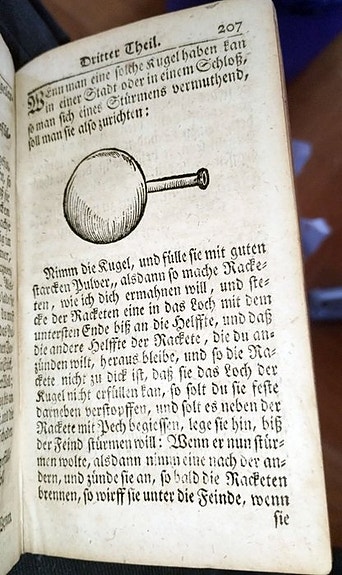 Dritter Theil. 207
WEnn man eine solche Kugel haben kan
in einer Stadt oder in einem Schloß,
so man sich eines Stürmens vermuthend,
soll man sie also zurichten:
Nimm die Kugel, und fülle sie mit guten
starcken Pulver, alsdann so mache Racke-
ten, wie ich dich ermahnen will, und ste-
cke der Racketen eine in das Loch mit dem
untersten Ende biß an die Helffte, und daß
die andere Helffte der Rackete, die du an-
zünden wilt, heraus bleibe, und so die Ra-
ckete nicht zu dick ist, daß sie das Loch der
Kugel nicht erfüllen kan, so solt du sie feste
darneben verstopffen, und solt es neben der
Rackete mit Pech begiessen, lege sie hin, biß
der Feind stürmen will: Wenn er nun stür-
men wolte, alsdann nimm eine nach der an-
dern, und zünde sie an, so bald die Racketen
brennen, so wirff sie unter die Feinde, wenn
sie